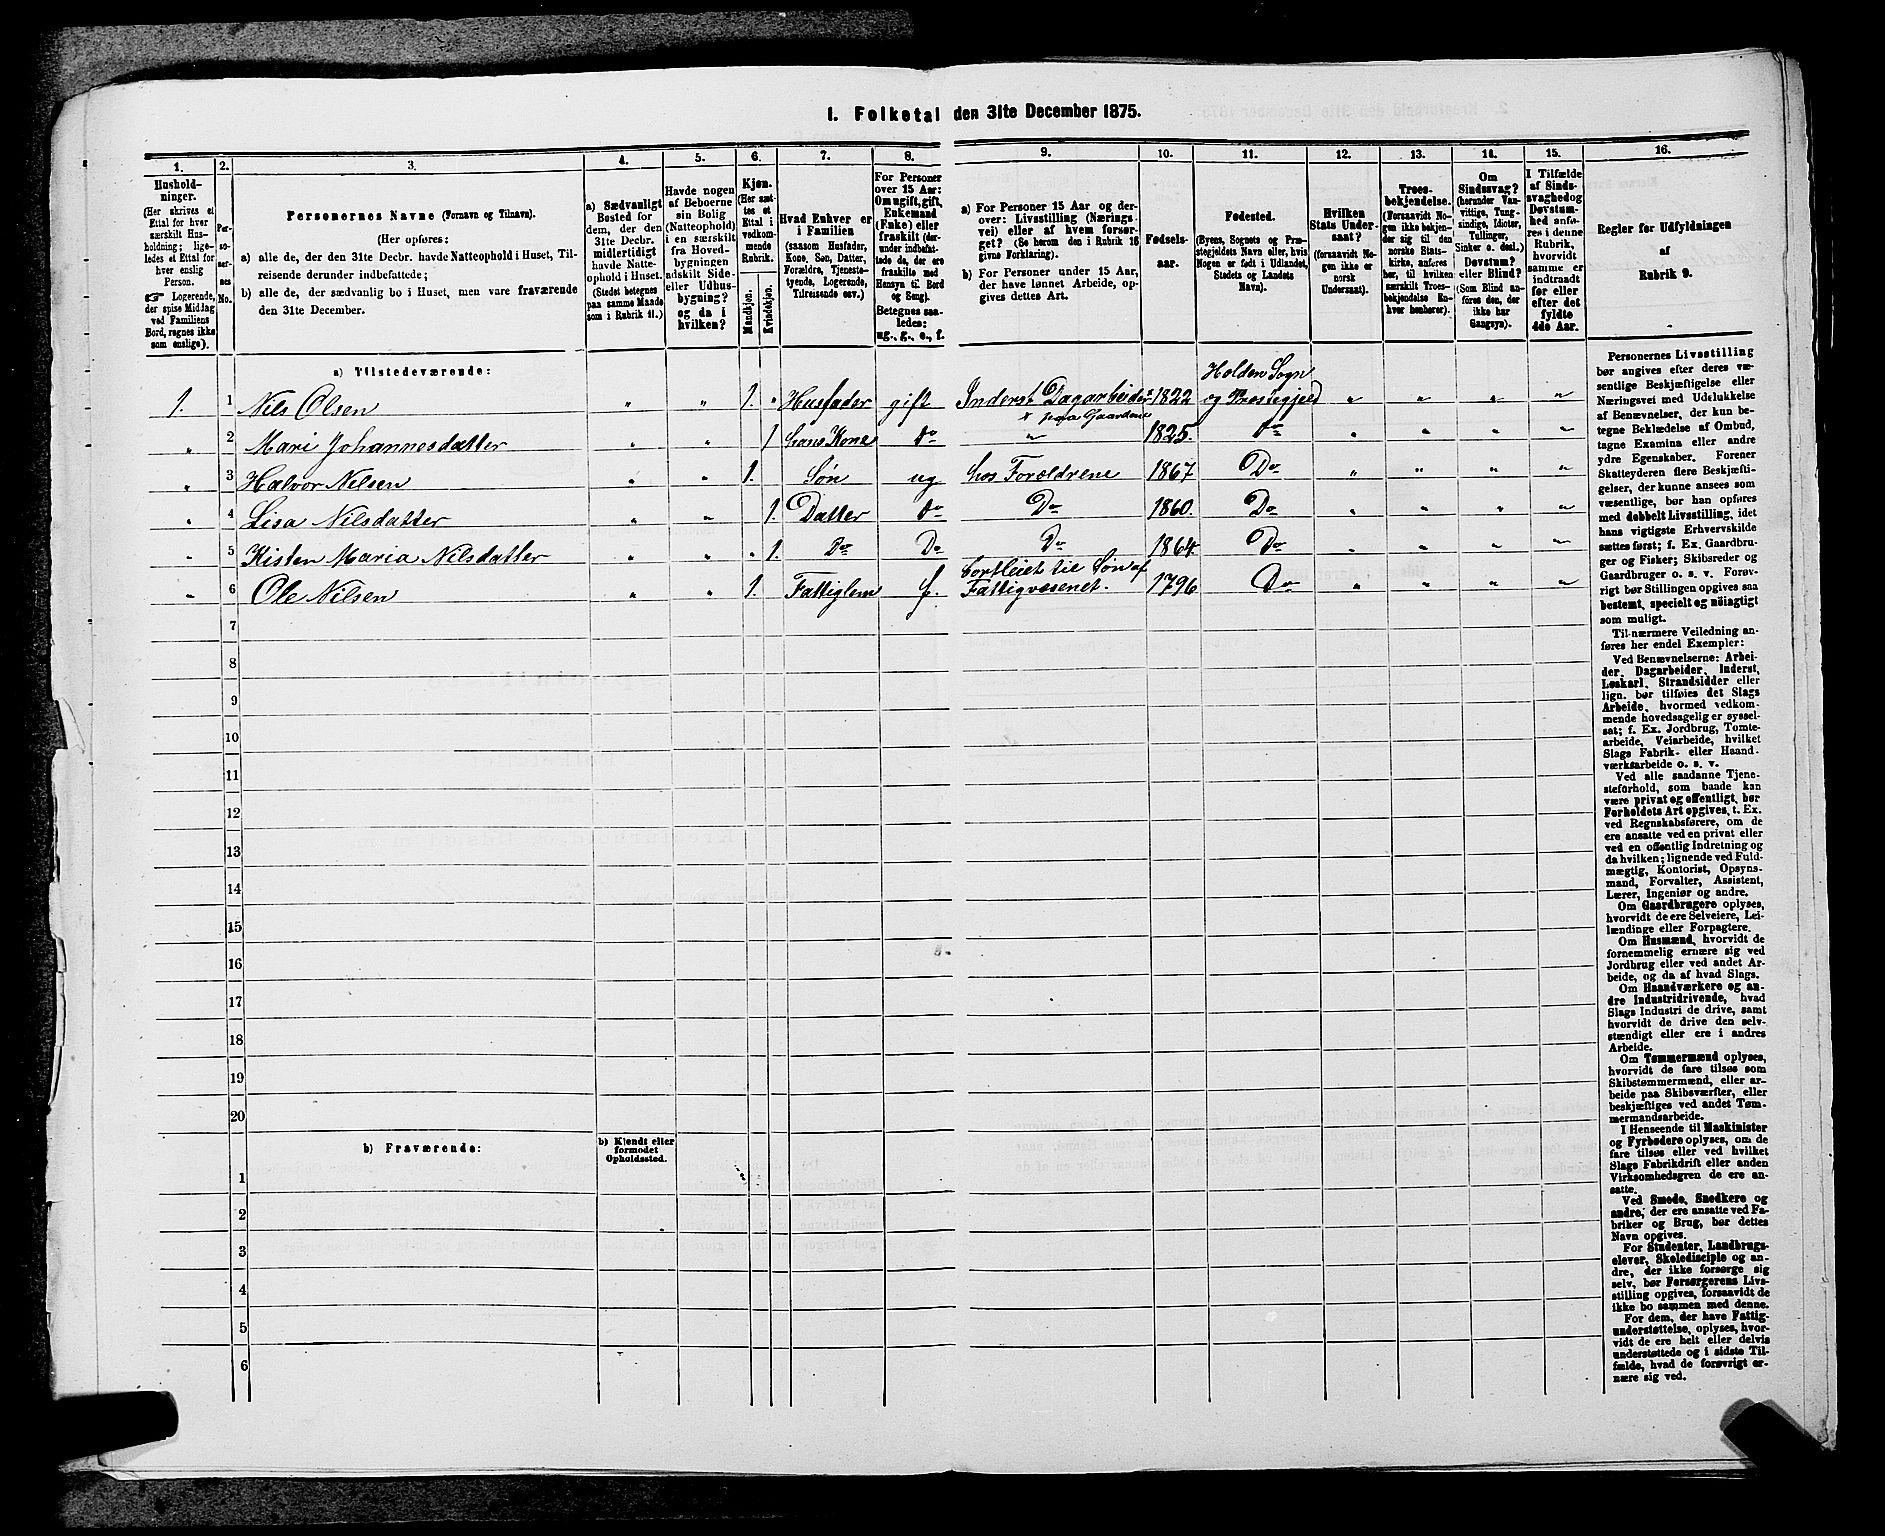 I. Folketal den 31te December 1875.
1. 2. 3. 4. 5. 6. 7. 8. 9. 10. 11. 12. 13. 14. 15. 16.
Hushold-
ninger.
(Her skrives et
Ettal for hver
særskilt Hus-
holdning; lige-
ledes et Ettal for
hver enslig
Person.
☞ Logerende,
der spise Middag
ved Familiens
Bord, regnes ikke
som enslige).
Per-
so-
ner-
nes
No.
Personernes Navne (Fornavn og Tilnavn).
(Her opføres:
a) alle de, der den 31te Decbr. havde Natteophold i Huset, Til-
reisende derunder indbefattede;
b) alle de, der sædvanlig bo i Huset, men vare fraværende
den 31te December.
a) Sædvanligt
Bosted for
dem, der den
31te Decbr.
midlertidigt
havde Natte-
ophold i Huset.
(Stedet betegnes
paa samme Maade
som i Rubrik 11.)
Havde nogen
af Beboerne
sin Bolig
(Natteophold)
i en særskilt
fra Hoved-
bygningen
adskilt Side-
eller Udhus-
bygning?
og da i
hvilken?
Kjøn.
(Her sæt-
tes et
Ettal i
vedkom-
mende
Rubrik.
Mandkjøn.
Kvindekjøn.
Hvad Enhver er
i Familien
(saasom Husfader,
Kone, Søn, Datter,
Forældre, Tjeneste-
tyende, Logerende,
Tilreisende osv.)
For Personer
over 15 Aar:
Om ugift, gift,
Enkemand
(Enke) eller
fraskilt (der-
under indbefat-
tede de, der ere
fraskilte med
Hensyn til Bord
og Seng).
Betegnes saa-
ledes:
ug., g., e., f.
a) For Personer 15 Aar og der-
over: Livsstilling (Nærings-
vei) eller af hvem forsør-
get? (Se herom den i Rubrik 16
givne Forklaring).
b) For Personer under 15 Aar,
der have lønnet Arbeide, op-
gives dettes Art.
Fødsels-
aar.
Fødested.
(Byens, Sognets og Præ-
stegjeldets Navn eller, hvis
Nogen er født i Udlandet,
Stedets og Landets
Navn).
Hvilken
Stats Under-
saat?
(forsaavidt No-
gen ikke er
norsk
Undersaat).
Troes-
bekjendelse.
(Forsaavidt No-
gen ikke bekjen-
der sig til den
norske Stats-
kirke, anføres
her, til hvilken
særskilt Troes-
bekjendelse En-
hver henhører).
Om
Sindssvag?
(herunder Van-
vittige, Tung-
sindige, Idioter,
Tullinger,
Sinker o. desl.)
Døvstum?
eller Blind?
(Som Blind an-
føres den, der
ikke har
Gangsyn).
I Tilfælde
af Sinds-
svaghed og
Døvstum-
hed anfø-
res i denne
Rubrik,
hvorvidt
samme er
indtraadt
før eller
efter det
fyldte
4de Aar.
Regler for Udfyldningen
af
Rubrik 9.
a) Tilstedeværende:
Holden Sogn
1. 1 Nils Olsen " " 1. " Husfader gift Inderst Dagarbeider 1822 og Præstegjeld " " " "
× paa Gaardene
" 2 Mari Johannesdatter " " 1 hans Kone do " 1825. do " " " "
" 3 Halvor Nilsen " " 1. Søn ug hos Forældrene 1867 Do " " " "
" 4 Lisa Nilsdatter " " 1. Datter do Do 1860. Do " " " "
" 5 Kisten Maria Nilsdatter " " " 1. Do Do Do 1864 Do " " " "
bortleiet til Søn af
" 6 Ole Nilsen " " 1. Fattiglem f. Fattigvæsenet. 1796 Do " " " "
7
8
9
10
11
12
13
14
15
16
17
18
19
20
b) Fraværende:
b) Kjendt eller
formodet
Opholdssted.
1
2
3
4
5
6
Personernes Livsstilling
bør angives efter deres væ-
sentlige Beskjæftigelse eller
Næringsvei med Udelukkelse
af Benævnelser, der kun be-
tegne Beklædelse af Ombud,
tagne Examina eller andre
ydre Egenskaber. Forener
Skatteyderen flere Beskjæfti-
gelser, der kunne ansees som
væsentlige, bør han opføres
med dobbelt Livsstilling, idet
hans vigtigste Erhvervskilde
sættes først; f. Ex. Gaardbru-
ger og Fisker; Skibsreder og
Gaardbruger o. s. v. Forøv-
rigt bør Stillingen opgives saa
bestemt, specielt og nøiagtigt
som muligt.
Til nærmere Veiledning an-
føres her endel Exempler:
Ved Benævnelserne: Arbei-
der, Dagarbeider, Inderst,
Løskarl, Strandsidder eller
lign. bør tilføies det Slags
Arbeide, hvormed vedkom-
mende hovedsagelig er syssel-
sat; f. Ex. Jordbrug, Tomte-
arbeide, Veiarbeide, hvilket
Slags Fabrik- eller Haand-
værksarbeide o. s. v.
Ved alle saadanne Tjene-
steforhold, som baade kan
være privat og offentligt, bør
Forholdets Art opgives, t. Ex.
ved Regnskabsførere, om de
ere ansatte ved en privat eller
ved en offentlig Indretning og
da hvilken; lignende ved Fuld-
mægtig, Kontorist, Opsyns-
mand, Forvalter, Assistent,
Lærer, Ingeniør og andre.
Om Gaardbrugere oplyses,
hvorvidt de ere Selveiere, Lei-
lændinge eller Forpagtere.
Om Husmænd, hvorvidt de
fornemmelig ernære sig ved
Jordbrug eller ved andet Ar-
beide, og da af hvad Slags.
Om Haandværkere og an-
dre Industridrivende, hvad
Slags Industri de drive, samt
hvorvidt de drive den selv-
stændigt eller ere i andres
Arbeide.
Om Tømmermænd oplyses,
hvorvidt de fare tilsøs som
Skibstømmermænd, eller ar-
beide paa Skibsværfter, eller
beskjæftiges ved andet Tøm-
mermandsarbeide.
I Henseende til Maskinister
og Fyrbødere oplyses, om de
fare tilsøs eller ved hvilket
Slags Fabrikdrift eller anden
Virksomhedsgren de ere an-
satte.
Ved Smede, Snedkere og
andre, der ere ansatte ved Fa-
briker og Brug, bør dettes
Navn opgives.
For Studenter, Landbrugs-
elever, Skoledisciple og an-
dre, der ikke forsørge sig
selv, bør Forsørgerens Livs-
stilling opgives, forsaavidt de
ikke bo sammen med denne.
For dem, der have Fattig-
understøttelse, oplyses, hvor-
vidt de ere helt eller delvis
understøttede og i sidste Til-
fælde, hvad de forøvrigt er-
nære sig ved.